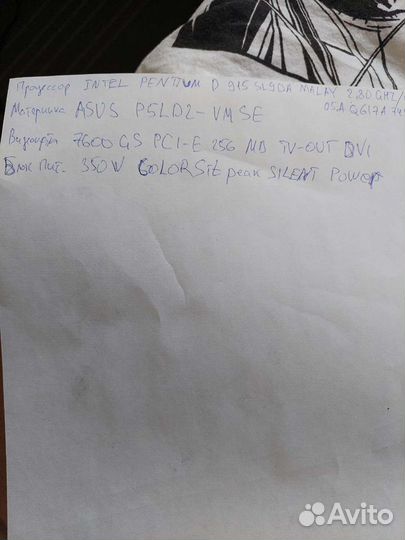 Процессор INTEL PENTIUM D 915 SL9DA MALAY 2.80 GHZ/
Материнка ASUS P5LD2-VM SE
05A Q617A
Видюкарта 7600 GS PCI-E 256 MB TV-OUT DVI
Блок Пит. 350W COLORSit peak SILENT Power
Avito